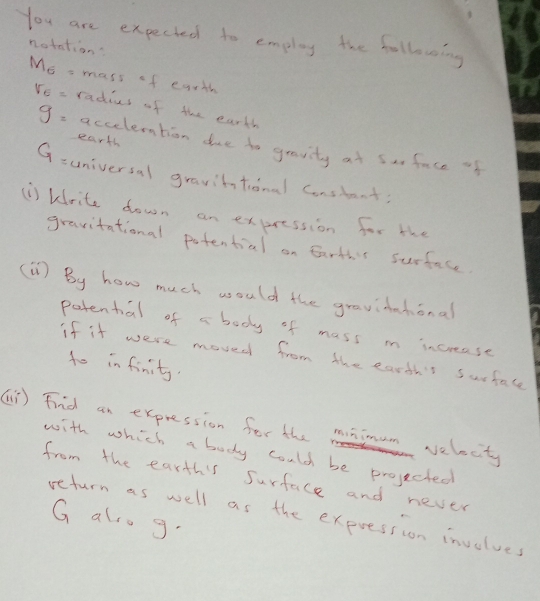 You are expected to employ the following
notation:
M6 = mass of earth
r6 = radius of the earth
g = acceleration due to gravity at surface of
earth
G = universal gravitational constant;
(i) Write down an expression for the
gravitational potential on Earth's surface.
(ii) By how much would the gravitational
potential of a body of mass m increase
if it were moved from the earth's surface
to infinity.
(iii) Find an expression for the minimum velocity
with which a body could be projected
from the earth's surface and never
return as well as the expression involves
G also g.